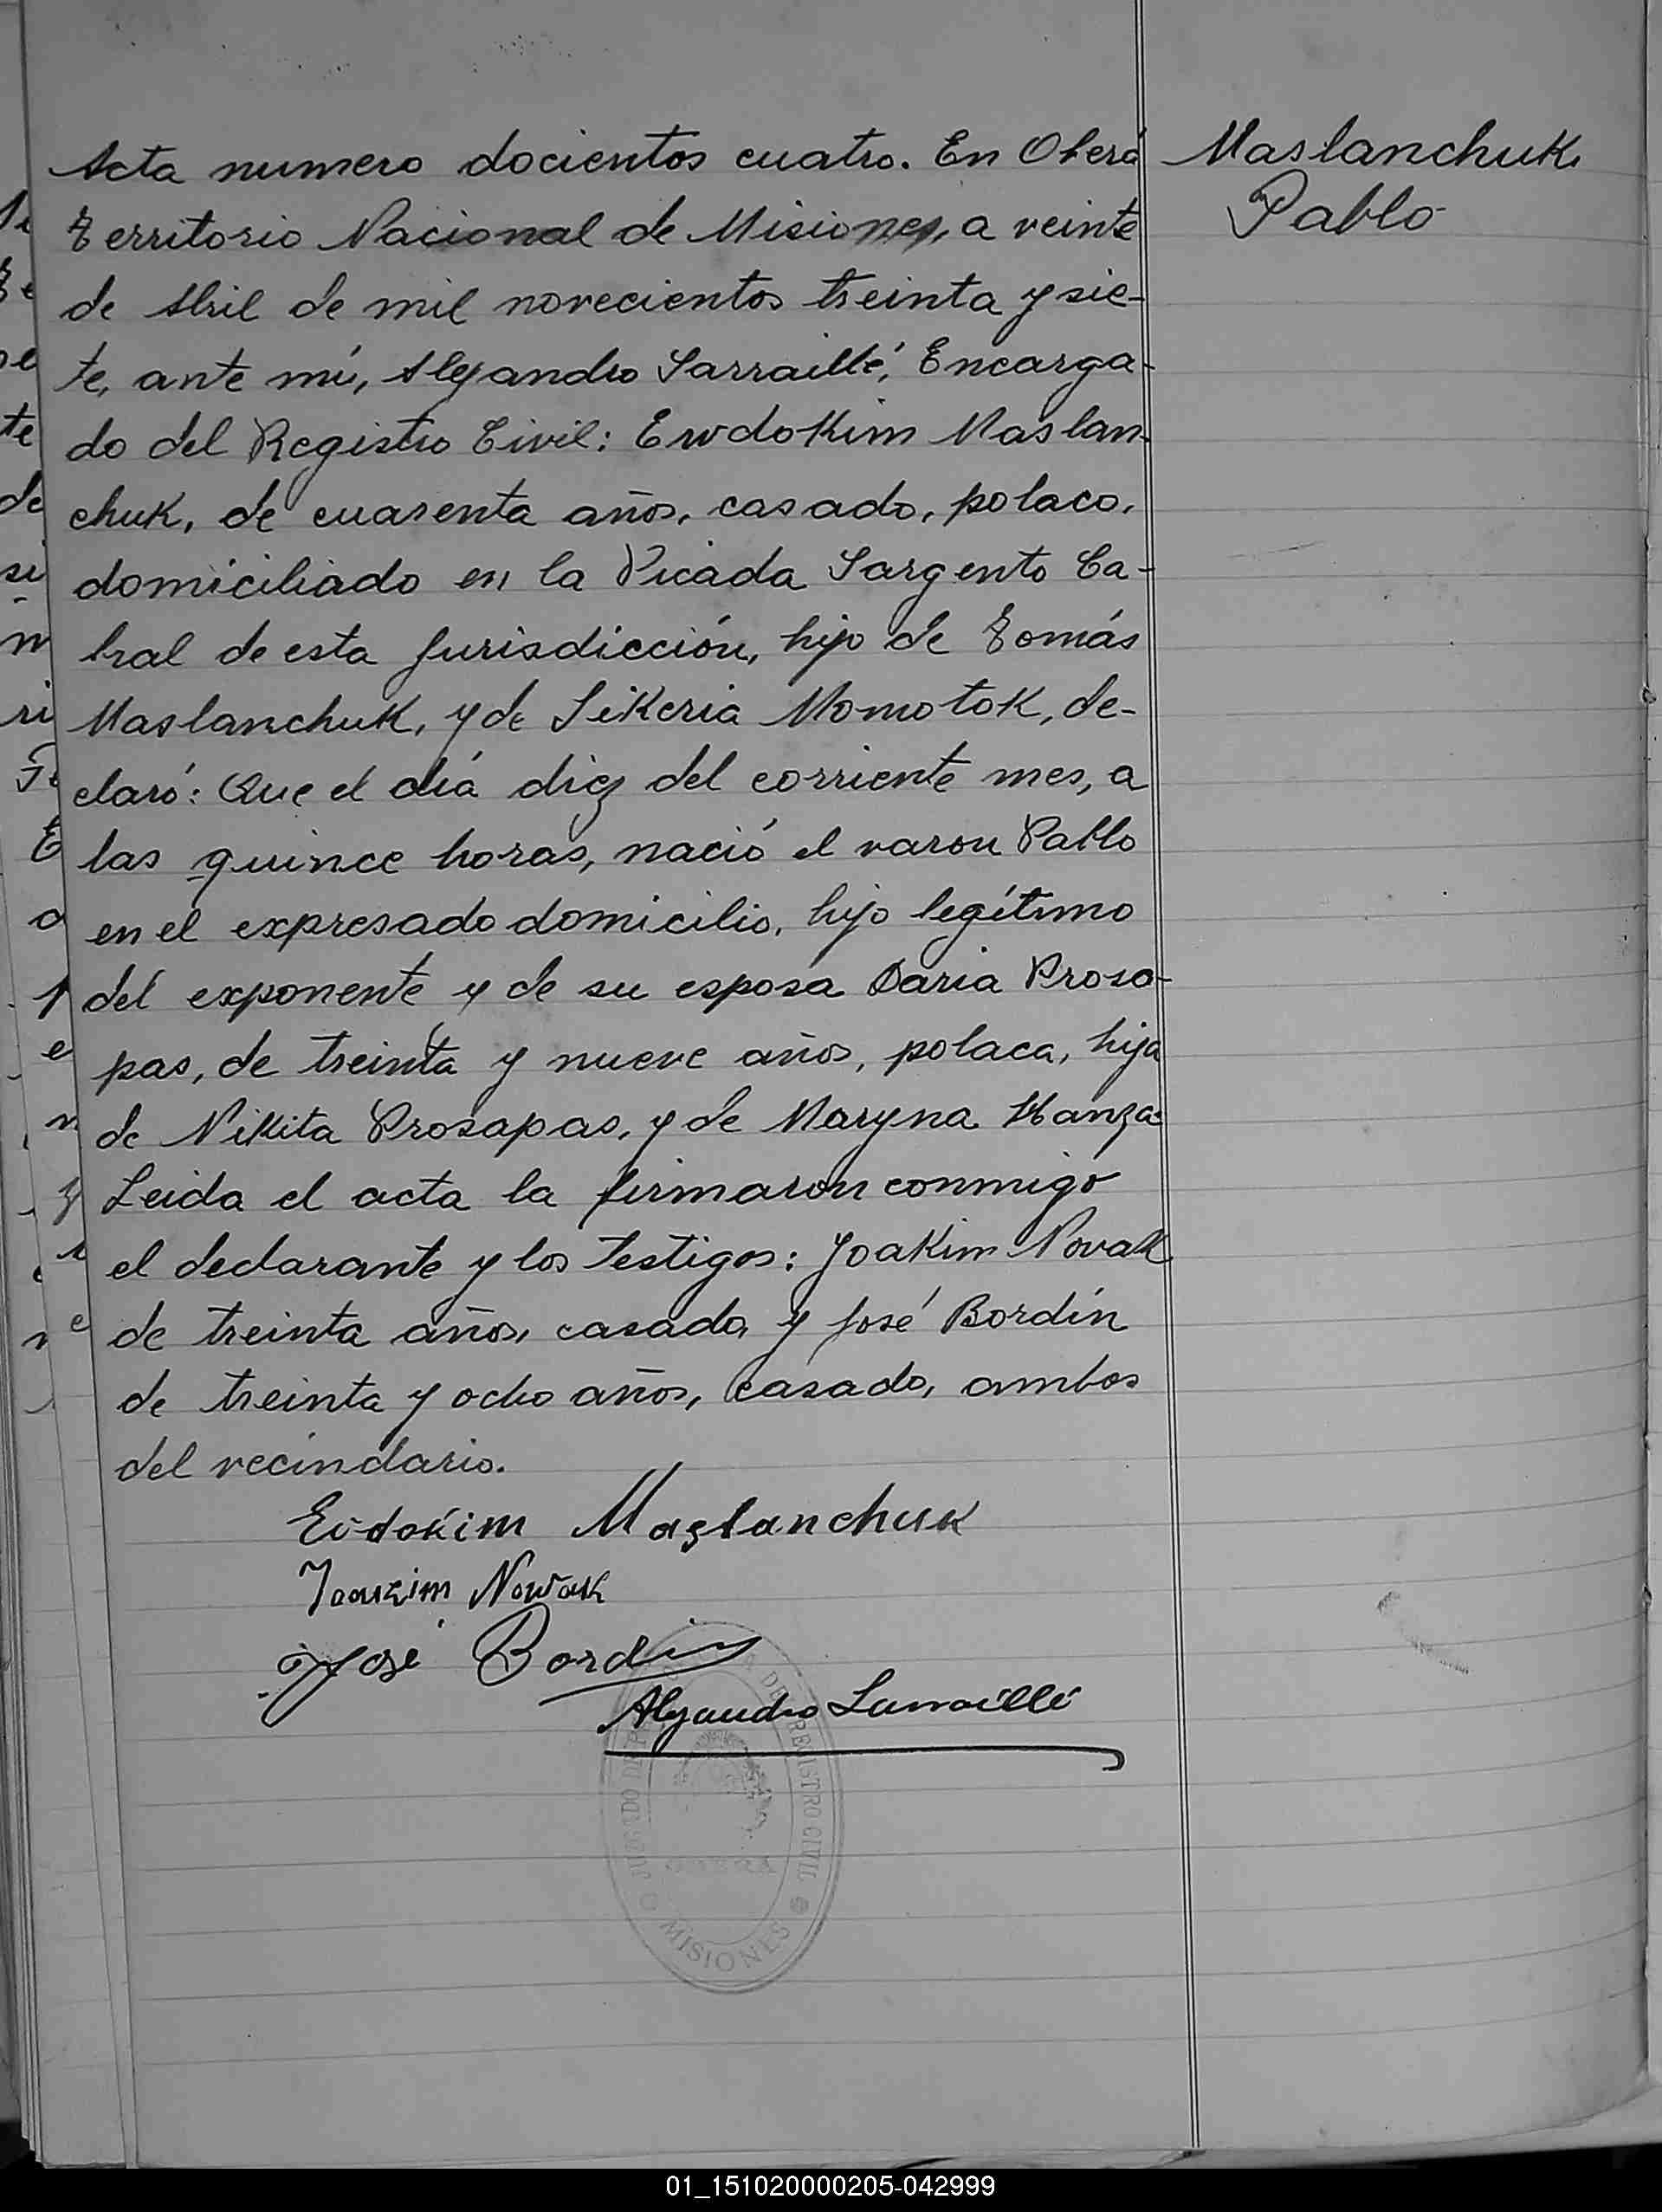 Acta numero docientos cuatro. En Oberá
Territorio Nacional de Misiones, a veinte
de Abril de mil novecientos treinta y sie-
te, ante mí, Alejandro Sarraillé, Encarga-
do del Registro Civil: Ewdokim Maslan-
chuk, de cuarenta años, casado, polaco,
domiciliado en la Picada Sargento Ca-
bral de esta jurisdicción, hijo de Tomás
Maslanchuk, y de Sikeria Momotok, de-
claró: Que el día diez del corriente mes, a
las quince horas, nació el varon Pablo
en el expresado domicilio, hijo legítimo
del exponente y de su esposa Daria Prosa-
pas, de treinta y nueve años, polaca, hija
de Nikita Prosapas, y de Maryna Hanza.
Leida el acta la firmaron conmigo
el declarante y los testigos: Joakim Novak
de treinta años, casado, y José Bordín
de treinta y ocho años, casado, ambos
del vecindario.
Evdokim Maslanchuk
Joakim Nowak
José Bordin
Alejandro Sarraillé
Maslanchuk
Pablo
REGISTRO CIVIL
MISIONES
01_151020000205-042999